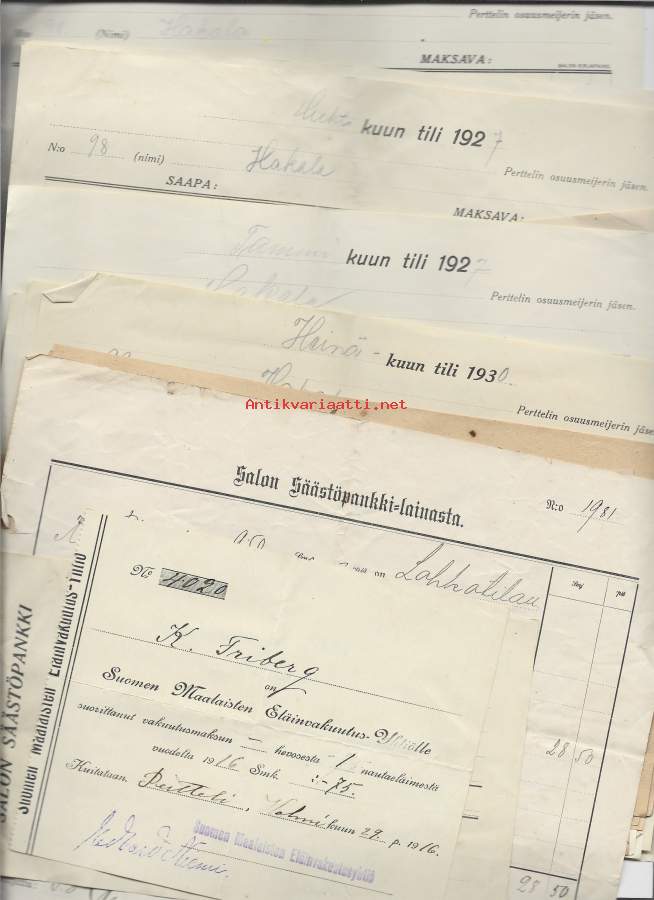 Perttelin osuusmeijerin jäsen.
(Nimi) Hakala
MAKSAVA:
Huhti kuun tili 1927
N:o 98 (nimi) Hakala
Perttelin osuusmeijerin jäsen.
SAAPA:
MAKSAVA:
Tammi kuun tili 1927
Hakala
Perttelin osuusmeijerin jäsen.
Heinä - kuun tili 1930.
Perttelin osuusmeijerin jäsen.
Antikvariaatti.net
Salon Säästöpankki-lainasta.
N:o 1981
on Lahkatilan
28 50
28 50
SALON SÄÄSTÖPANKKI
Suomen Maalaisten Eläinvakuutus-Yhtiö
No 4020
K. Friberg
on
Suomen Maalaisten Eläinvakuutus-Yhtiölle
suorittanut vakuutusmaksun — hevosesta 1 nautaelaimestä
vuodelta 1916 Smk. :-75.
Kuitataan, Pertteli, Helmi kuun 29 p. 1916.
Suomen Maalaisten Eläinvakuutusyhtiö